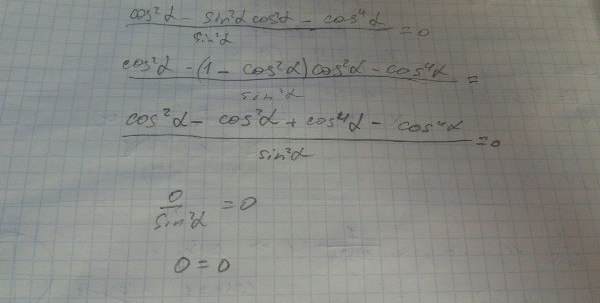 cos²α - sin²α cos²α - cos⁴α / sin²α = 0
cos²α - (1 - cos²α) cos²α - cos⁴α / sin²α =
cos²α - cos²α + cos⁴α - cos⁴α / sin²α = 0
0 / sin²α = 0
0 = 0